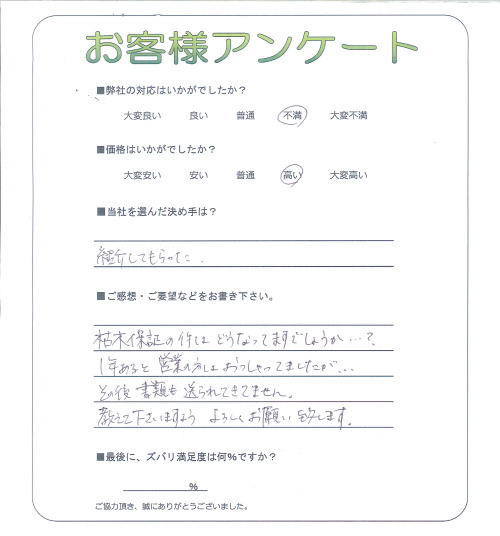 お客様アンケート
■弊社の対応はいかがでしたか？
大変良い 良い 普通 不満 大変不満
■価格はいかがでしたか？
大変安い 安い 普通 高い 大変高い
■当社を選んだ決め手は？
紹介してもらった.
■ご感想・ご要望などをお書き下さい。
枯木保証の件は どうなってますでしょうか…？
1年あると 営業の方は おっしゃってましたが…
その後 書類も 送られてきてません。
教えて下さいますよう よろしくお願い致します。
■最後に、ズバリ満足度は何%ですか？
%
ご協力頂き、誠にありがとうございました。